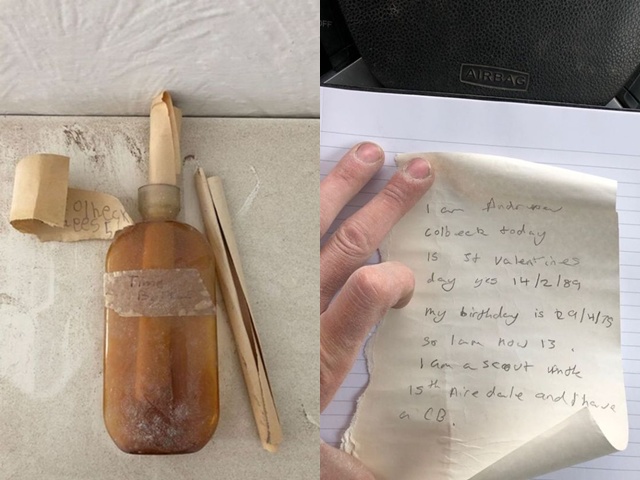 AIRBAG
I am Andrew
Colbeck today
is St Valentines
day yes 14/2/89
my birthday is 29/4/75
so I am now 13.
I am a scout
15th Airedale and I have
a CB.
Time